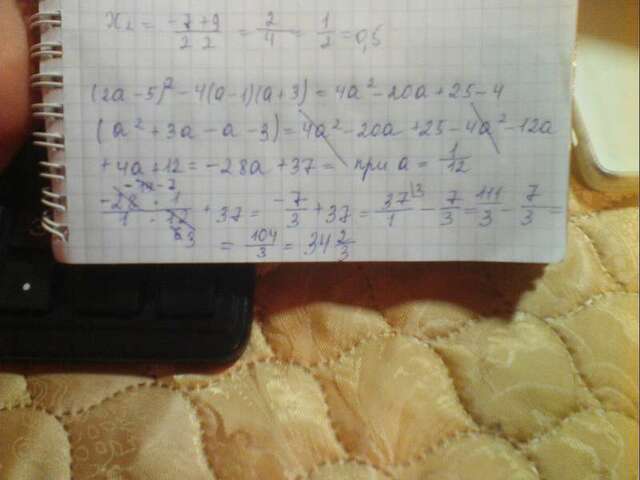 x₂ = (-7+9)/(2·2) = 2/4 = 1/2 = 0,5
(2a-5)² - 4(a-1)(a+3) = 4a² - 20a + 25 - 4
(a² + 3a - a - 3) = 4a² - 20a + 25 - 4a² - 12a
+ 4a + 12 = -28a + 37 = при a = 1/12
(-28 · 1)/(1 · 12) + 37 = -7/3 + 37 = 37/1 - 7/3 = 111/3 - 7/3 =
= 104/3 = 34 2/3